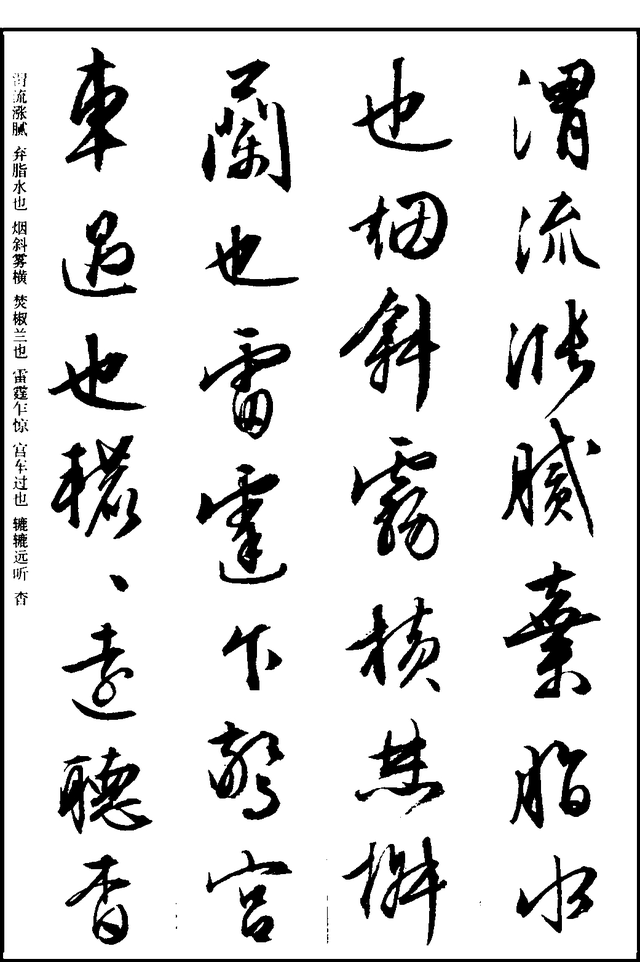 渭流漲膩棄脂水
也烟斜霧橫焚椒
蘭也雷霆乍驚宮
車過也轆〻遠聽杳
渭流涨腻 弃脂水也 烟斜雾横 焚椒兰也 雷霆乍惊 宫车过也 辘辘远听 杳